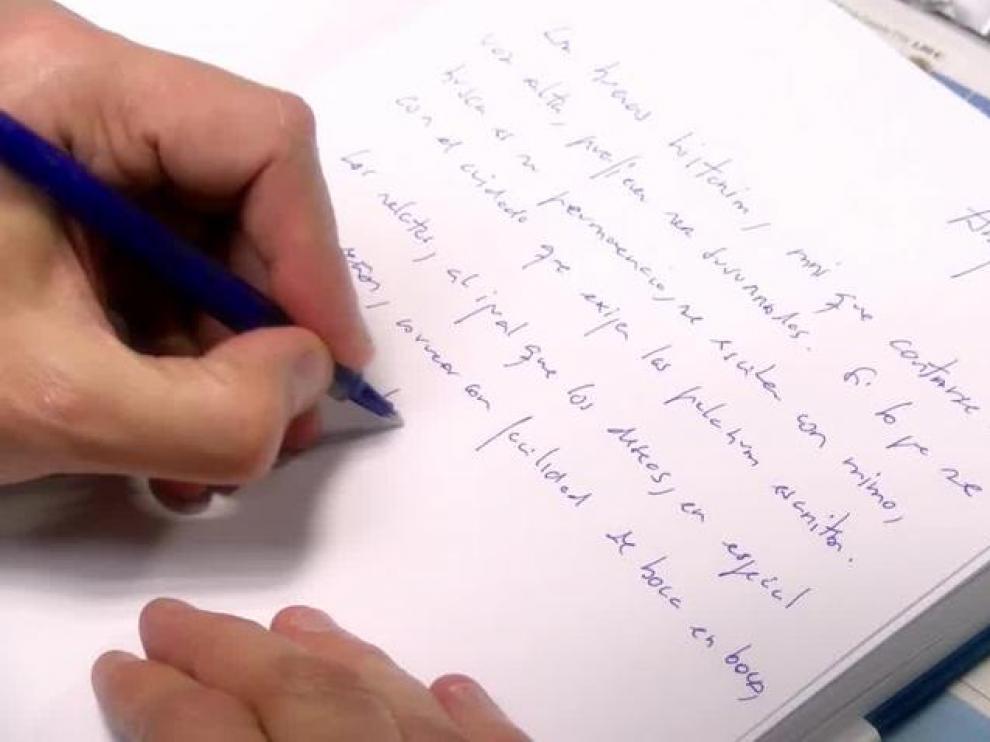 Las buenas historias, más que contarse
voz alta, prefieren ser susurradas. Si lo que se
busca es su permanencia, se escriben con mimo,
con el cuidado que exigen las palabras escritas.
Los relatos, al igual que los deseos, en especial
corren con facilidad de boca en boca,